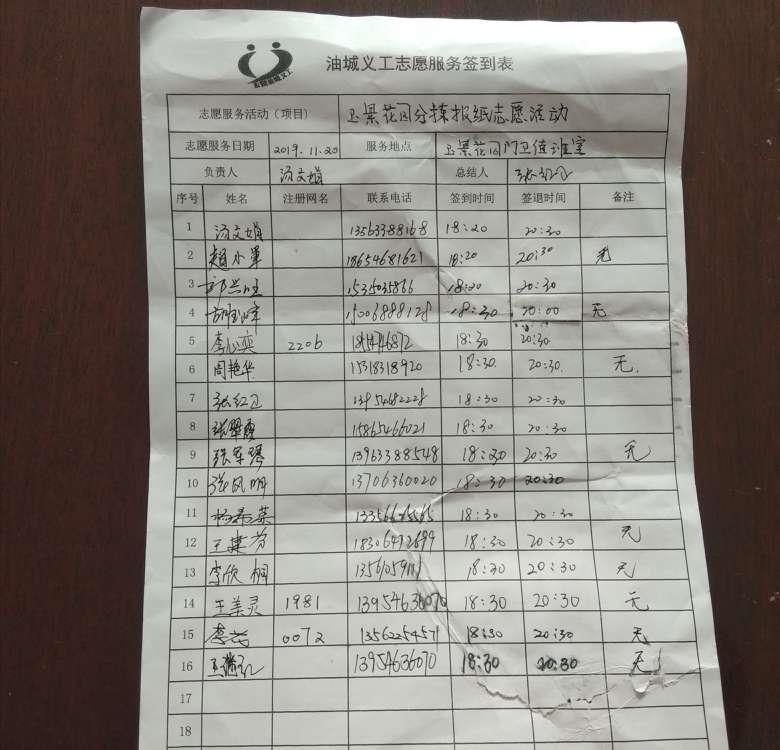 油城义工志愿服务签到表
志愿服务活动（项目） 玉景花园分拣报纸志愿活动
志愿服务日期 2019.11.20 服务地点 玉景花园门卫值班室
负责人 汤文娟 总结人
序号 姓名 注册网名 联系电话 签到时间 签退时间 备注
1 汤文娟 13563388168 18:20 20:30
2 赵小军 18654681621 18:20 20:30 无
3 18:20 20:30
4 15006888128 18:30 20:00 无
5 李心奕 2206 18:30 20:30
6 周艳华 15318318920 18:30 20:30 无
7 张红卫 13954682228 18:30 20:30
8 张翠霞 15865466021 18:30 20:30
9 张军琴 13963388548 18:30 20:30 无
10 张凤明 13706360020 18:30 20:30
11 杨希荣 18:30 20:30
12 王建芬 18:30 20:30 无
13 李欣桐 18:30 20:30 无
14 王美灵 1981 13954636070 18:30 20:30 无
15 李芳 0072 13562254571 18:30 20:30 无
16 13954636070 18:30 20:30 无
17
18